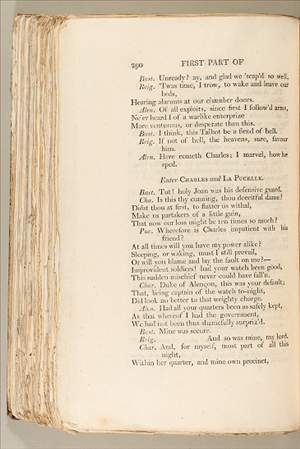 290 FIRST PART OF
Bast. Unready? ay, and glad we 'scap'd so well.
Reig. 'Twas time, I trow, to wake and leave our
beds,
Hearing alarums at our chamber doors.
Alen. Of all exploits, since first I follow'd arms,
Ne'er heard I of a warlike enterprize
More venturous, or desperate than this.
Bast. I think, this Talbot be a fiend of hell.
Reig. If not of hell, the heavens, sure, favour
him.
Alen. Here cometh Charles; I marvel, how he
sped.
Enter CHARLES and LA PUCELLE.
Bast. Tut! holy Joan was his defensive guard.
Cha. Is this thy cunning, thou deceitful dame?
Didst thou at first, to flatter us withal,
Make us partakers of a little gain,
That now our loss might be ten times so much?
Puc. Wherefore is Charles impatient with his
friend?
At all times will you have my power alike?
Sleeping, or waking, must I still prevail,
Or will you blame and lay the fault on me?—
Improvident soldiers! had your watch been good,
This sudden mischief never could have fall'n.
Char. Duke of Alençon, this was your default;
That, being captain of the watch to-night,
Did look no better to that weighty charge.
Alen. Had all your quarters been as safely kept,
As that whereof I had the government,
We had not been thus shamefully surpriz'd.
Bast. Mine was secure.
Reig. And so was mine, my lord.
Char. And, for myself, most part of all this
night,
Within her quarter, and mine own precinct,